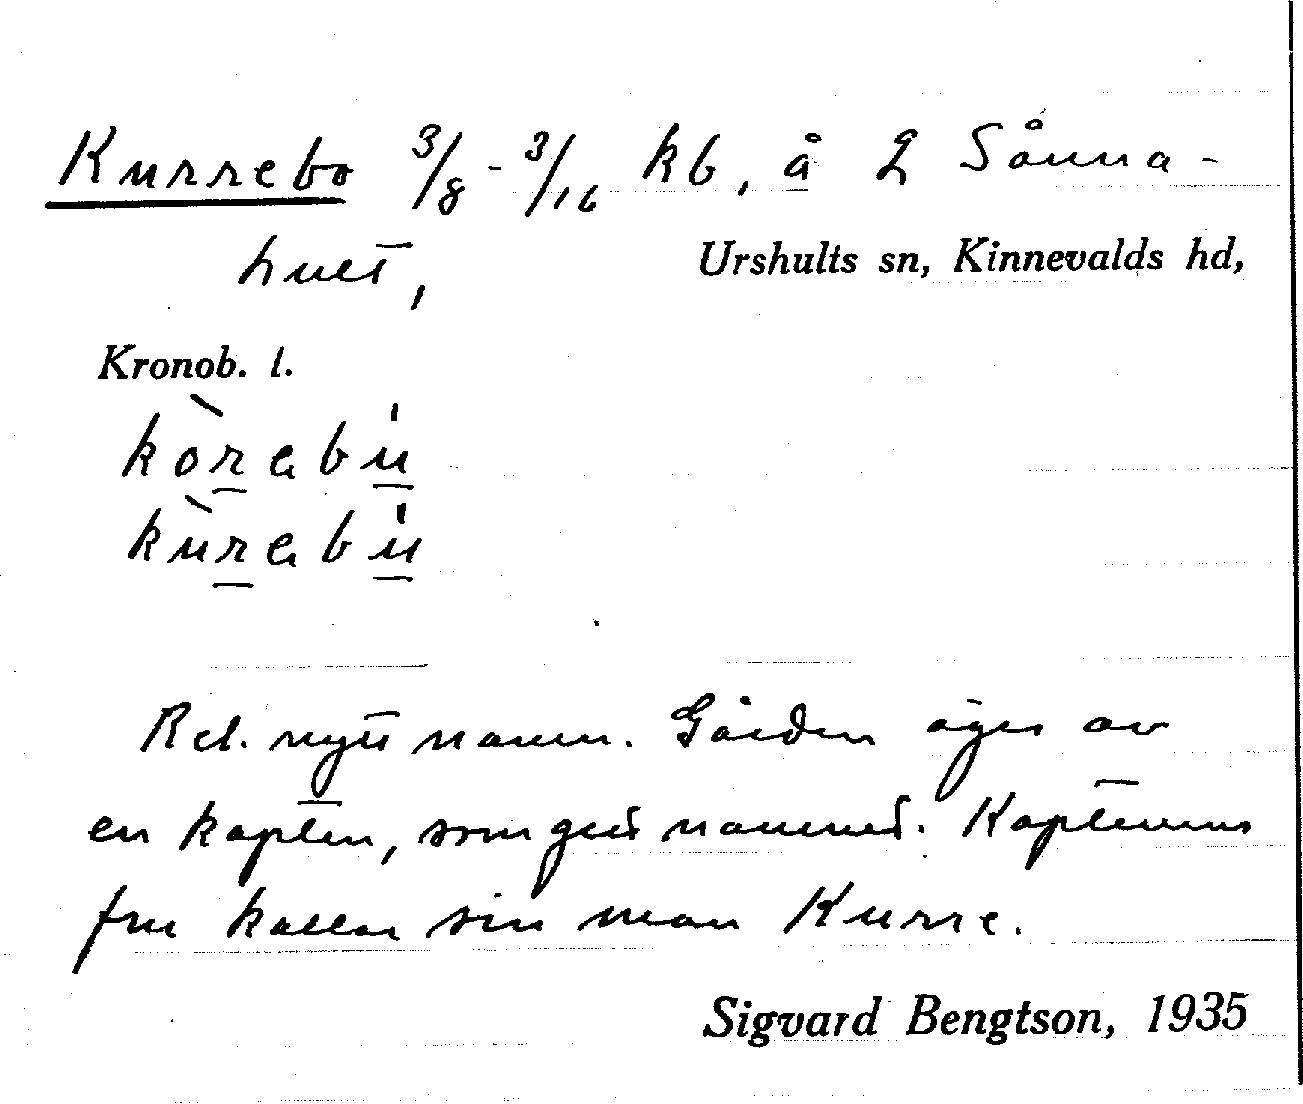 Kurrebo 3/8 - 3/16 kb, å 2 Sånna-
hult,
Urshults sn, Kinnevalds hd,
Kronob. l.
kòrabú
kùrabú
Rel. nytt namn. Gården äges av
en kapten, som gett namnet. Kaptenens
fru kallar sin man Kurre.
Sigvard Bengtson, 1935